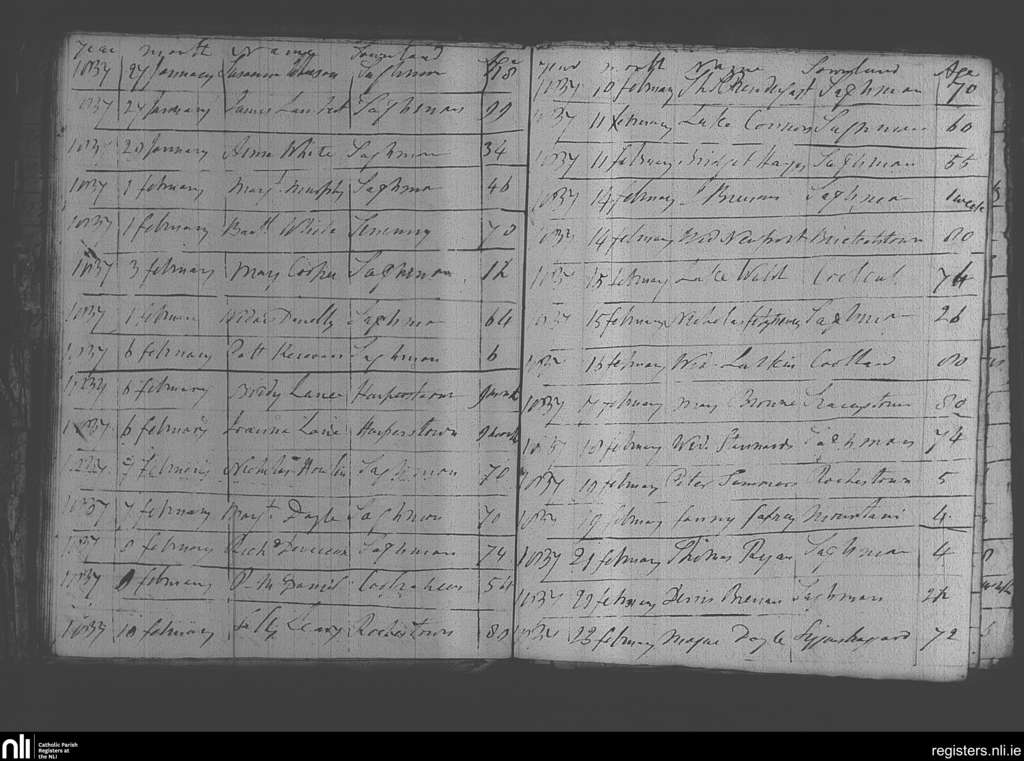 year month Name Townland Age
1837 27 January Susanna Taghmon 78
1837 27 January James Lambert Taghmon 99
1837 28 January Anne White Taghmon 34
1837 1 february Marg.t Murphy Taghmon 46
1837 1 february Bart. White 70
1837 3 february Mary Cooper Taghmon 12
1837 1 february Donelly Taghmon 64
1837 6 february Patt Taghmon 6
1837 6 february Lane Harperstown
1837 6 february Joanna Lane Harperstown 9 week
1837 7 february Nicholas Howlin Taghmon 70
1837 7 february Marg.t Doyle Taghmon 70
1837 8 february Rich.d Devereux Taghmon 74
1837 9 february P. McDaniel 54
1837 10 february Leary Rochestown 80
year month Name Townland Age
1837 10 february Prendergast Taghmon 70
1837 11 february Luke Connors Taghmon 60
1837 11 february Bridget Hayes Taghmon 55
1837 14 february J Brenan Taghmon 1 week
1837 14 february Wid Newport Brickatstown 80
1837 15 february Luke Walsh Coolcul 74
1837 15 february Nicholas Taghmon 26
1837 15 february Wid. Larkin 80
1837 17 february Mary Browne Traceystown 80
1837 18 february Wid. Taghmon 74
1837 19 february Peter Summers Rochestown 5
1837 19 february fanny Jafrey Mountain 4
1837 21 february Thomas Ryan Taghmon 4
1837 23 february Dennis Brenan Taghmon
1837 23 february Doyle 72
nli Catholic Parish
Registers at
the NLI
registers.nli.ie